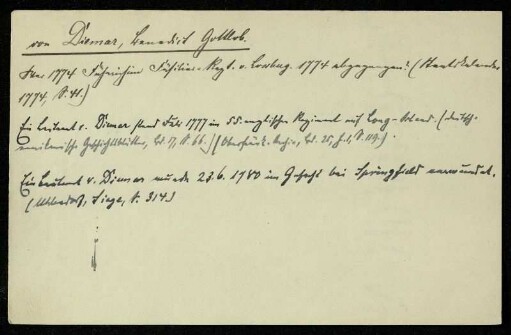 von Diemar, Benedict Gottlob.
1774 Fähnrich im Füsilier-Regt. v. Lossberg. 1774 abgegangen! (Staatskalender
1774, S. 41.)
Ein Leutnant v. Diemar stand Febr 1777 im 55. englischen Regiment auf Long-Island. (Deutsch-
amerikanische Geschichtsblätter, Bd. 17, S. 66.) (Oberfränk. Archiv, Bd. 25, S. 119.)
Ein Leutnant v. Diemar wurde 23.6. 1780 im Gefecht bei Springfield verwundet.
(Uhlendorf, Siege, S. 314.)